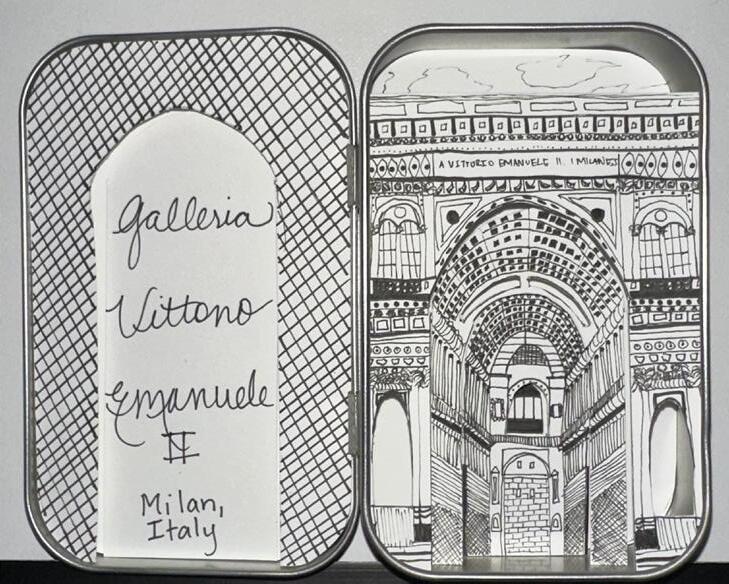 Galleria
Vittorio
Emanuele
II
Milan,
Italy
A VITTORIO EMANUELE II. I MILANESI